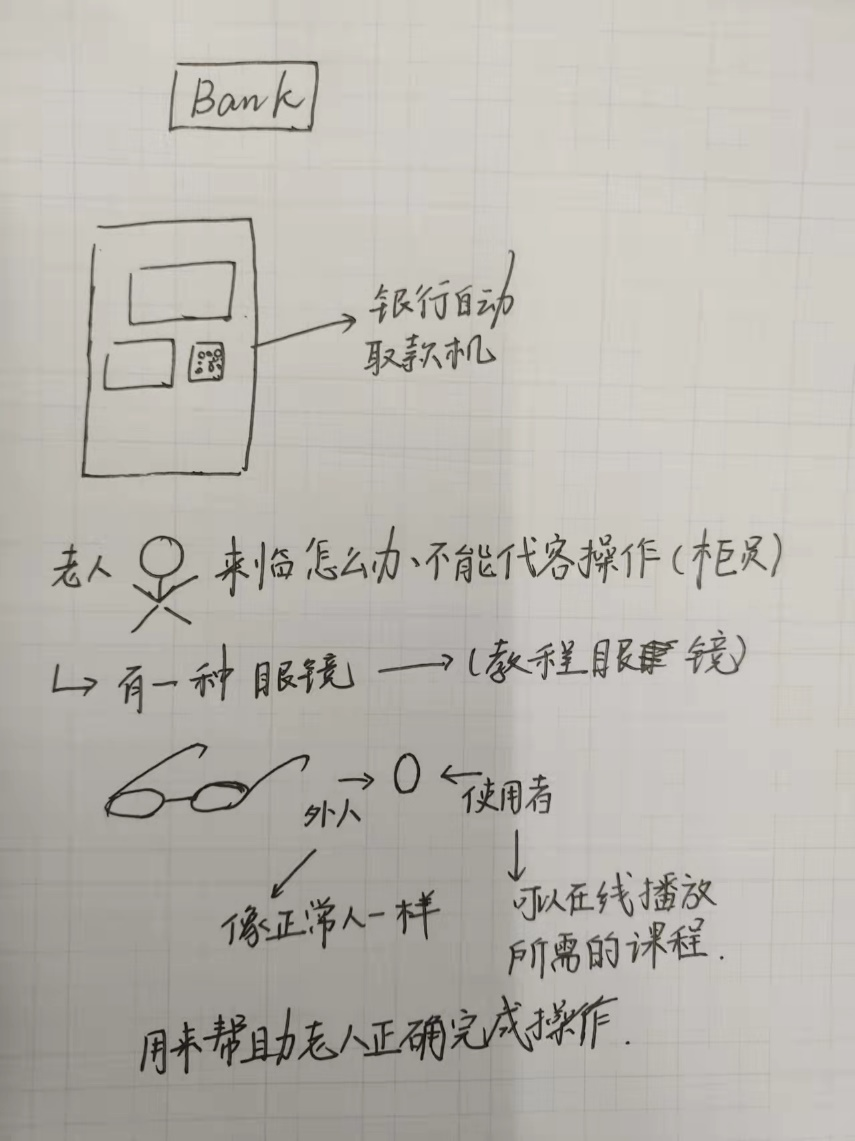 Bank
银行自动
取款机
老人 来临怎么办、不能代客操作(柜员)
有一种眼镜 (教程眼镜)
外人 使用者
像正常人一样
可以在线播放
所需的课程.
用来帮助老人正确完成操作.